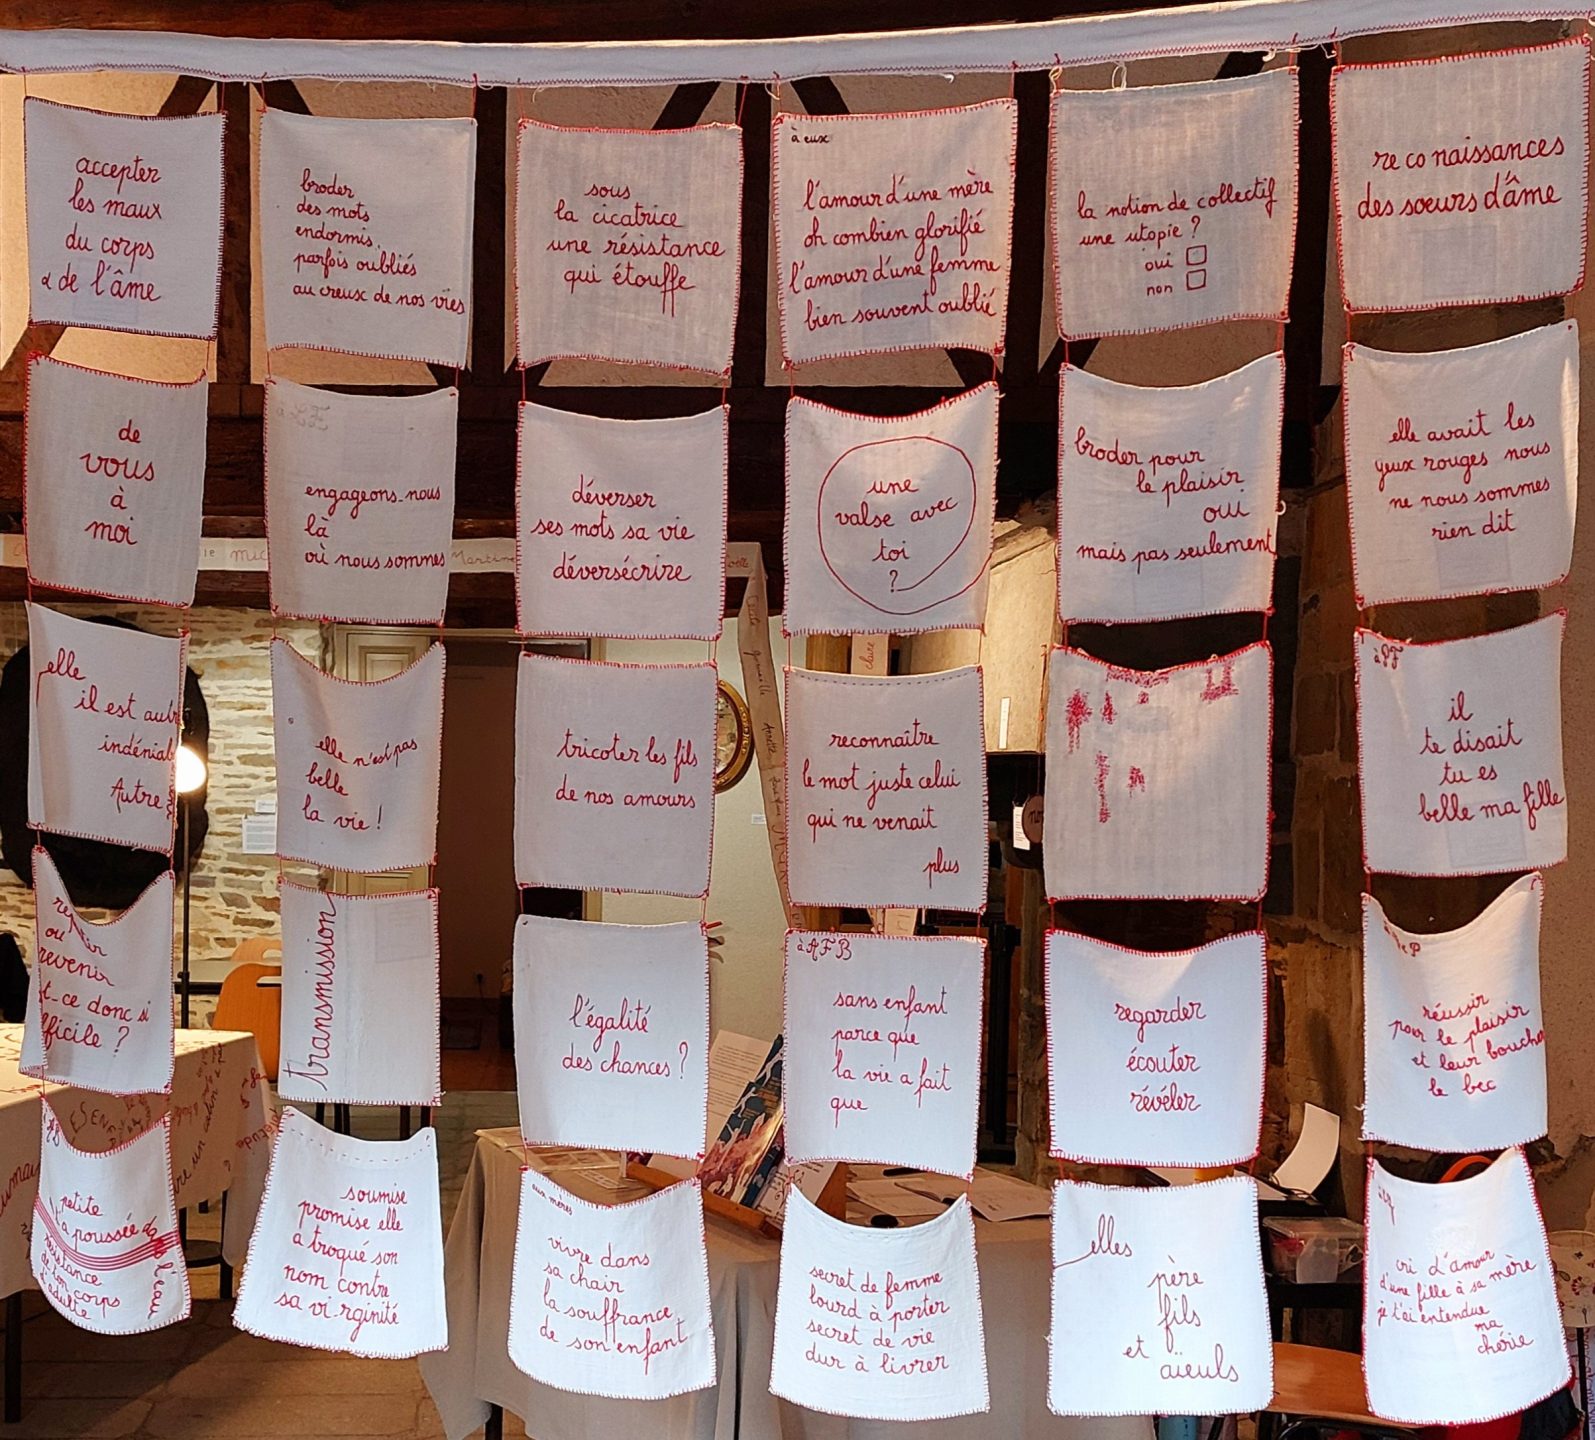 accepter
les maux
du corps
& de l'âme
broder
des mots
endormis,
parfois oubliés
au creux de nos vies
sous
la cicatrice
une résistance
qui étouffe
à eux
l'amour d'une mère
oh combien glorifié
l'amour d'une femme
bien souvent oublié
la notion de collectif
une utopie ?
oui
non
re co naissances
des soeurs d'âme
de
vous
à
moi
engageons-nous
là
où nous sommes
déverser
ses mots sa vie
déversécrire
une
valse avec
toi
?
broder pour
le plaisir
oui
mais pas seulement
elle avait les
yeux rouges nous
ne nous sommes
rien dit
elle
il est aut
indéniab
Autre
elle n'est pas
belle
la vie !
tricoter les fils
de nos amours
reconnaître
le mot juste celui
qui ne venait
plus
il
te disait
tu es
belle ma fille
ou
revenir
ce donc si
fficile ?
transmission
l'égalité
des chances ?
à AFB
sans enfant
parce que
la vie a fait
que
regarder
écouter
révéler
réussir
pour le plaisir
et leur boucher
le bec
petite
t'a poussée dans l'eau
résistance
de ton corps
d'adulte
soumise
promise elle
a troqué son
nom contre
sa vi rginité
aux mères
vivre dans
sa chair
la souffrance
de son enfant
secret de femme
lourd à porter
secret de vie
dur à livrer
elles
père
fils
et
aïeuls
cri d'amour
d'une fille à sa mère
je t'ai entendue
ma
chérie
Martine
claire